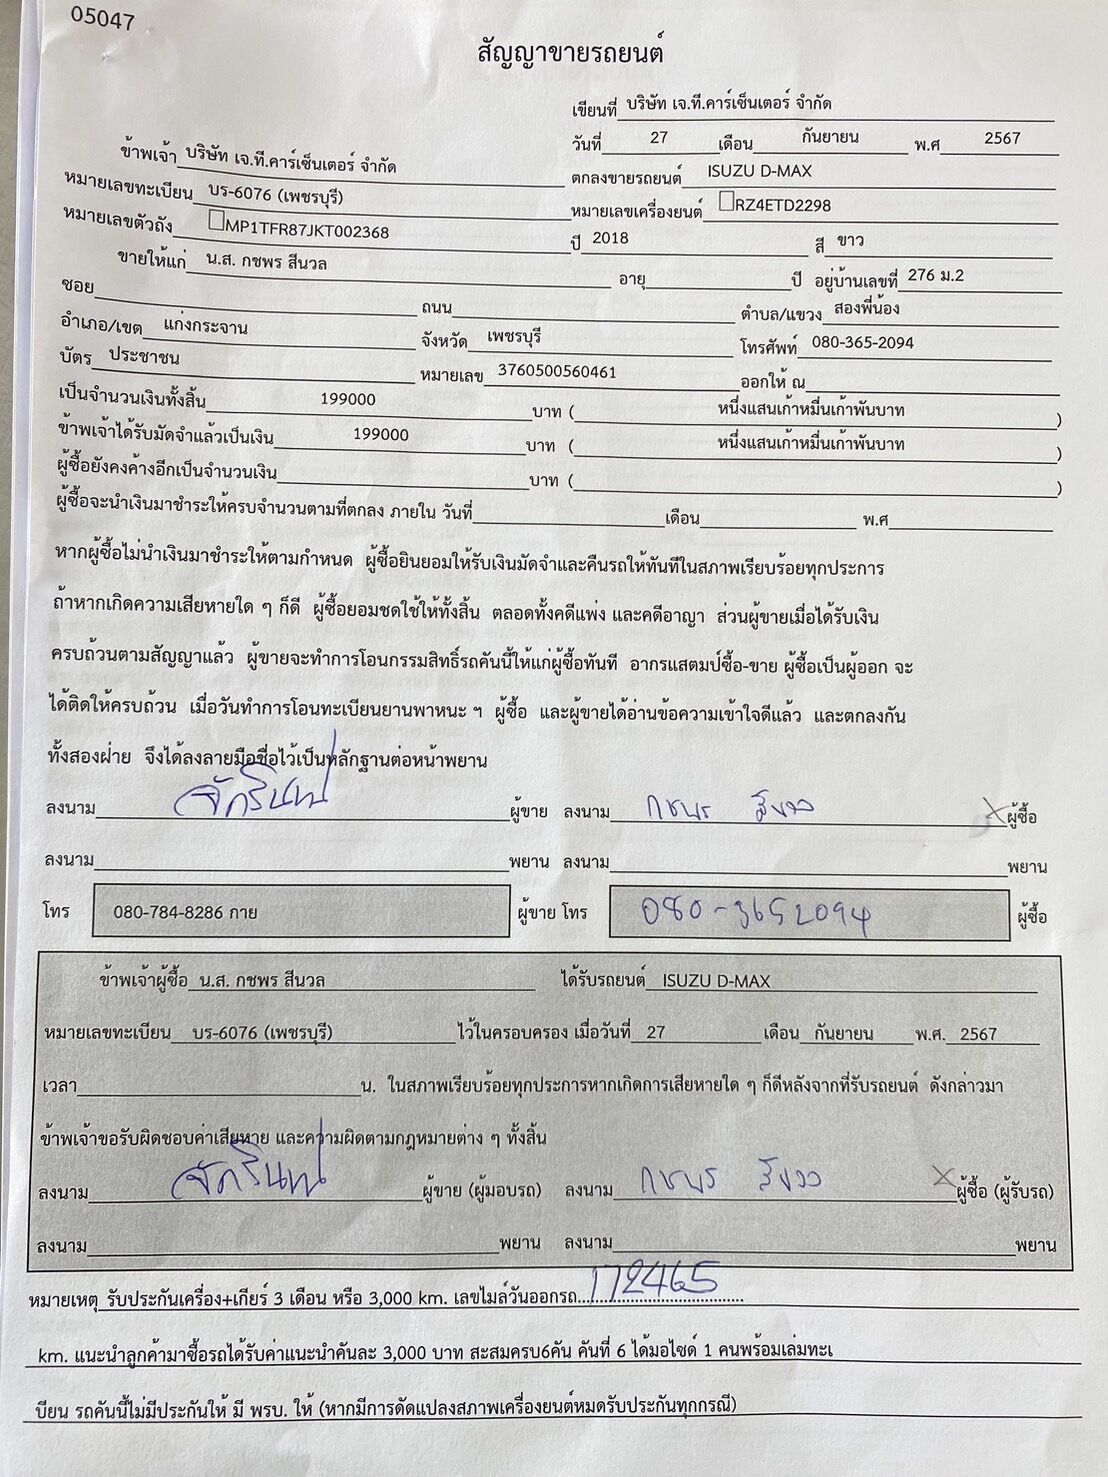 05047
สัญญาขายรถยนต์
เขียนที่ บริษัท เจ.ที.คาร์เซ็นเตอร์ จำกัด
วันที่ 27 เดือน กันยายน พ.ศ 2567
ข้าพเจ้า บริษัท เจ.ที.คาร์เซ็นเตอร์ จำกัด ตกลงขายรถยนต์ ISUZU D-MAX
หมายเลขทะเบียน บร-6076 (เพชรบุรี) หมายเลขเครื่องยนต์ RZ4ETD2298
หมายเลขตัวถัง MP1TFR87JKT002368 ปี 2018 สี ขาว
ขายให้แก่ น.ส. กชพร สีนวล อายุ ปี อยู่บ้านเลขที่ 276 ม.2
ซอย ถนน ตำบล/แขวง สองพี่น้อง
อำเภอ/เขต แก่งกระจาน จังหวัด เพชรบุรี โทรศัพท์ 080-365-2094
บัตร ประชาชน หมายเลข 3760500560461 ออกให้ ณ
เป็นจำนวนเงินทั้งสิ้น 199000 บาท ( หนึ่งแสนเก้าหมื่นเก้าพันบาท )
ข้าพเจ้าได้รับมัดจำแล้วเป็นเงิน 199000 บาท ( หนึ่งแสนเก้าหมื่นเก้าพันบาท )
ผู้ซื้อยังคงค้างอีกเป็นจำนวนเงิน บาท ( )
ผู้ซื้อจะนำเงินมาชำระให้ครบจำนวนตามที่ตกลง ภายใน วันที่ เดือน พ.ศ
หากผู้ซื้อไม่นำเงินมาชำระให้ตามกำหนด ผู้ซื้อยินยอมให้รับเงินมัดจำและคืนรถให้ทันทีในสภาพเรียบร้อยทุกประการ
ถ้าหากเกิดความเสียหายใด ๆ ก็ดี ผู้ซื้อยอมชดใช้ให้ทั้งสิ้น ตลอดทั้งคดีแพ่ง และคดีอาญา ส่วนผู้ขายเมื่อได้รับเงิน
ครบถ้วนตามสัญญาแล้ว ผู้ขายจะทำการโอนกรรมสิทธิ์รถคันนี้ให้แก่ผู้ซื้อทันที อากรแสตมป์ซื้อ-ขาย ผู้ซื้อเป็นผู้ออก จะ
ได้ติดให้ครบถ้วน เมื่อวันทำการโอนทะเบียนยานพาหนะ ฯ ผู้ซื้อ และผู้ขายได้อ่านข้อความเข้าใจดีแล้ว และตกลงกัน
ทั้งสองฝ่าย จึงได้ลงลายมือชื่อไว้เป็นหลักฐานต่อหน้าพยาน
ลงนาม จักรินทน์ ผู้ขาย ลงนาม กชพร สีนวล X ผู้ซื้อ
ลงนาม พยาน ลงนาม พยาน
โทร 080-784-8286 กาย ผู้ขาย โทร 080-3652094 ผู้ซื้อ
ข้าพเจ้าผู้ซื้อ น.ส. กชพร สีนวล ได้รับรถยนต์ ISUZU D-MAX
หมายเลขทะเบียน บร-6076 (เพชรบุรี) ไว้ในครอบครอง เมื่อวันที่ 27 เดือน กันยายน พ.ศ. 2567
เวลา น. ในสภาพเรียบร้อยทุกประการหากเกิดการเสียหายใด ๆ ก็ดีหลังจากที่รับรถยนต์ ดังกล่าวมา
ข้าพเจ้าขอรับผิดชอบค่าเสียหาย และความผิดตามกฎหมายต่าง ๆ ทั้งสิ้น
ลงนาม จักรินทน์ ผู้ขาย (ผู้มอบรถ) ลงนาม กชพร สีนวล X ผู้ซื้อ (ผู้รับรถ)
ลงนาม พยาน ลงนาม พยาน
หมายเหตุ รับประกันเครื่อง+เกียร์ 3 เดือน หรือ 3,000 km. เลขไมล์วันออกรถ 172465
km. แนะนำลูกค้ามาซื้อรถได้รับค่าแนะนำคันละ 3,000 บาท สะสมครบ6คัน คันที่ 6 ได้มอไซด์ 1 คนพร้อมเล่มทะเ
บียน รถคันนี้ไม่มีประกันให้ มี พรบ. ให้ (หากมีการดัดแปลงสภาพเครื่องยนต์หมดรับประกันทุกกรณี)